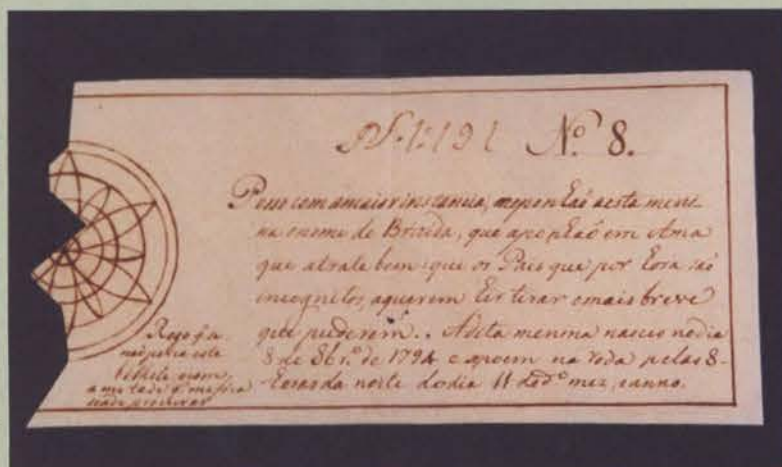 Nº 8.
Peço com a maior instancia, me ponhaõ a esta meni-
na o nome de Brizida, que a ponhaõ em Ama
que a trate bem: que os Pais que por hora saõ
incognitos, a querem hir tirar o mais breve
que puderem.. A dita menina nasceo no dia
8 de 8br.º de 1794 e a poem na roda pelas 8-
horas da noite do dia 11 do dº mez, e anno.
Rogo q̃ se
naõ perca este
bilhete
a metade
procurar